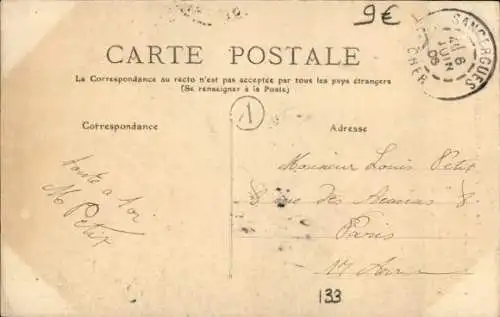 9€
SANCERGUES
6
JUIN
05
CHER
CARTE POSTALE
La Correspondance au recto n'est pas acceptée par tous les pays étrangers
(Se renseigner à la Poste)
A
Correspondance
Adresse
Monsieur Louis Petit
rue des Acacias 8
Paris
17 Arr
M Petit
133